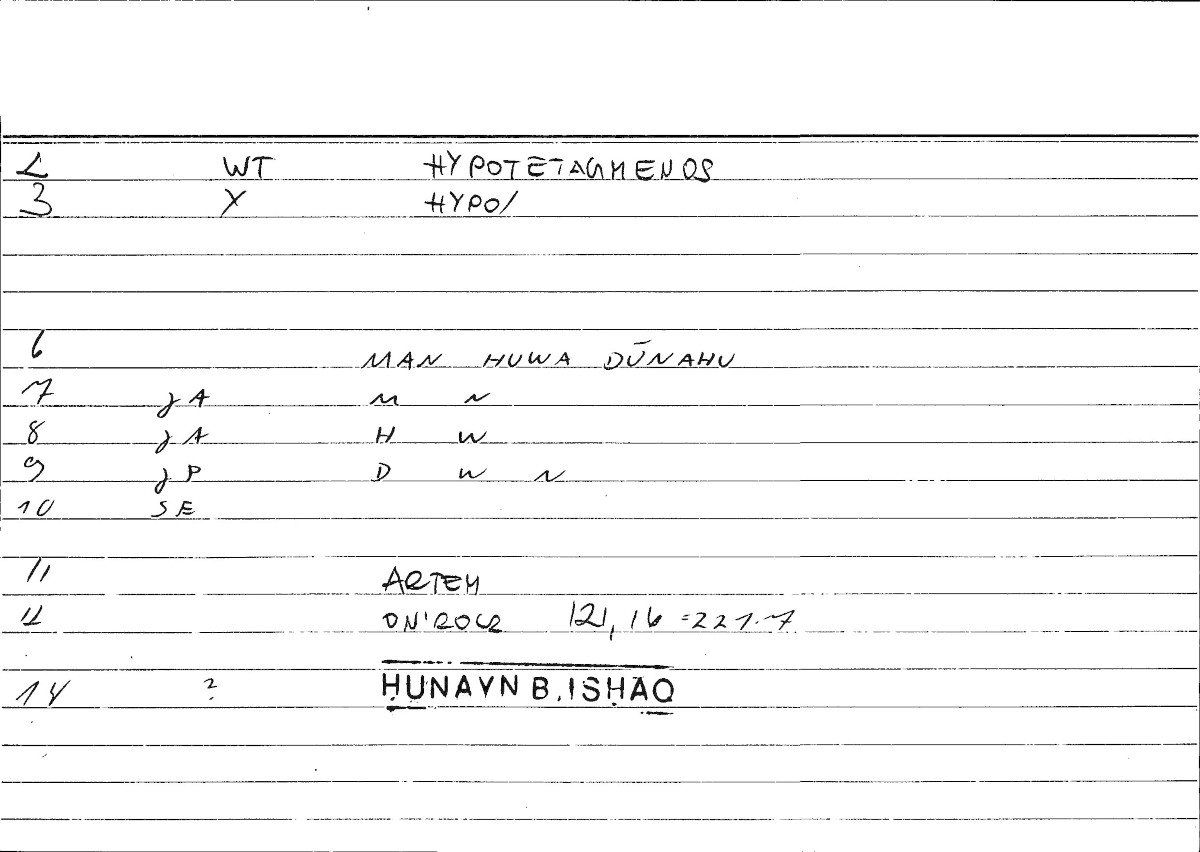 2 WT HYPOTETAGMENOS
3 X HYPO/
6 MAN HUWA DŪNAHU
7 JA M N
8 JA H W
9 JP D W N
10 SE
11 ARTEM
12 ON'ROCR 121, 16 =221.7
14 ? ḤUNAYN B. ISḤĀQ